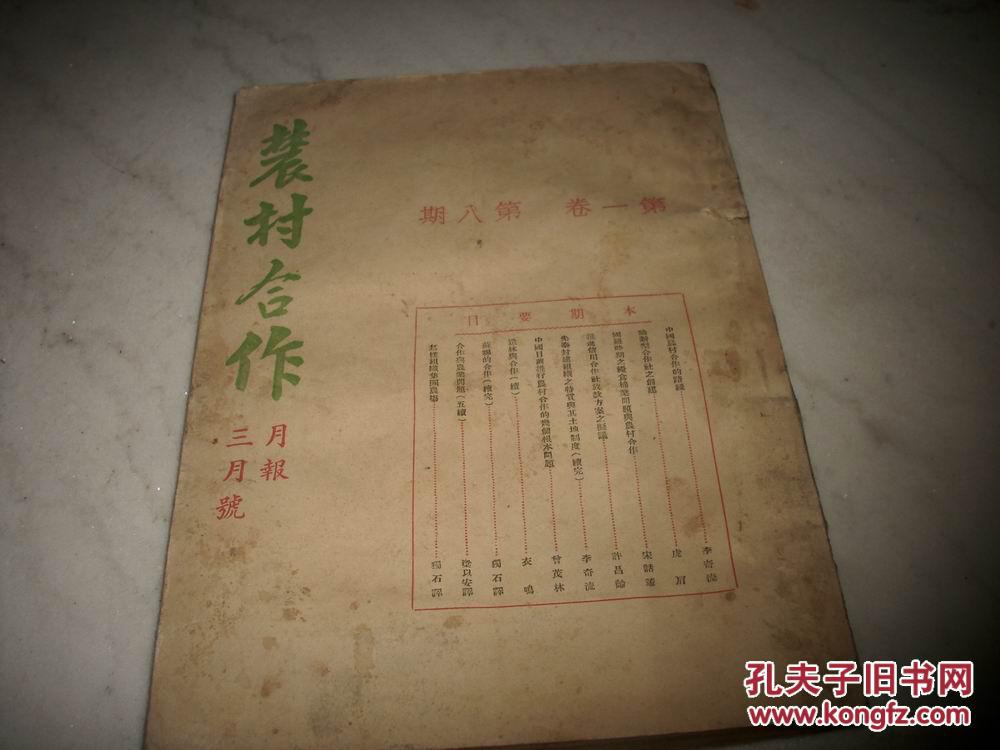 農村合作
月報
三月號
第一卷 第八期
本期要目
中國農村合作的路綫 李奇流
合作社之 虎眉
國難時期之糧食棉業問題與農村合作 宋
信用合作社放款方案之擬議 許昌齡
先秦封建組織之特質與其土地制度(續完) 李奇流
中國目前推行農村合作的幾個根本問題 曾茂林
造林與合作(續) 衣鳴
蘇聯的合作(續完) 獨石譯
合作與農業問題(五續) 梁以安譯
怎樣組織集團農場 獨石譯
孔夫子旧书网
www.kongfz.com